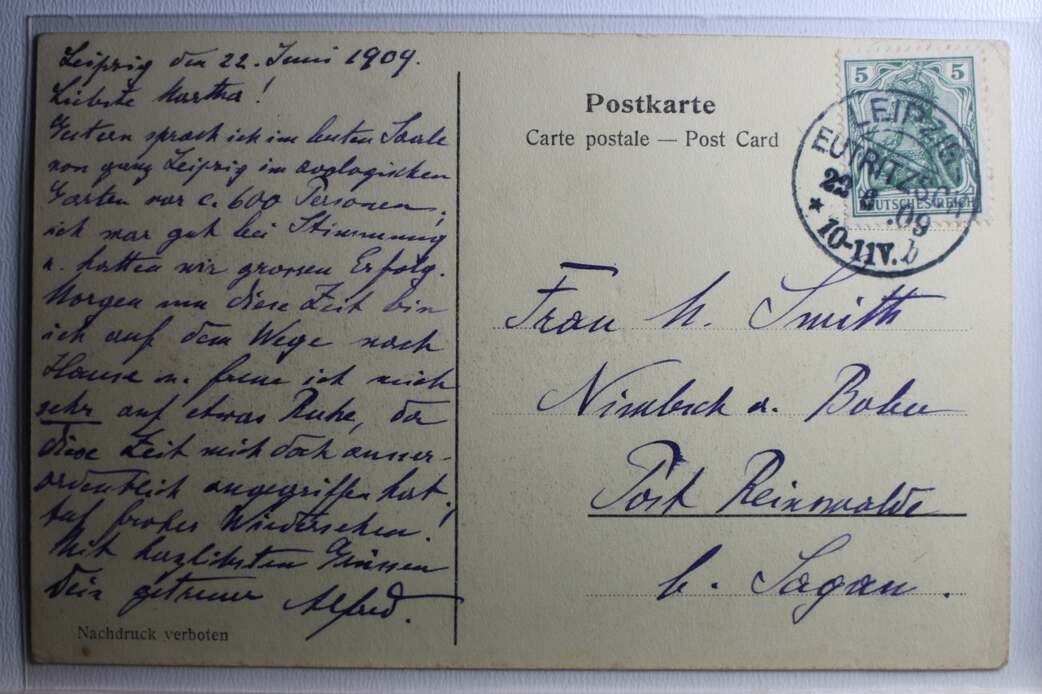 Leipzig den 22. Juni 1909.
Liebste Martha!
Gestern sprach ich im besten Saale
von ganz Leipzig im zoologischen
Garten vor c. 600 Personen;
ich war gut bei Stimmung
u. hatten wir grossen Erfolg.
Morgen um diese Zeit bin
ich auf dem Wege nach
Hause u. freue ich mich
sehr auf etwas Ruhe, da
diese Zeit mich doch ausser-
ordentlich angegriffen hat.
Auf frohes Wiedersehen!
Mit herzlichsten Grüssen
Dein getreuer Alfred.
Nachdruck verboten
Postkarte
Carte postale — Post Card
5 5
DEUTSCHES REICH
LEIPZIG-
EUTRITZSCH
.09
* 10-11V. b
Frau M. Smith
a. Bober
Post Reinswalde
b. Sagan.